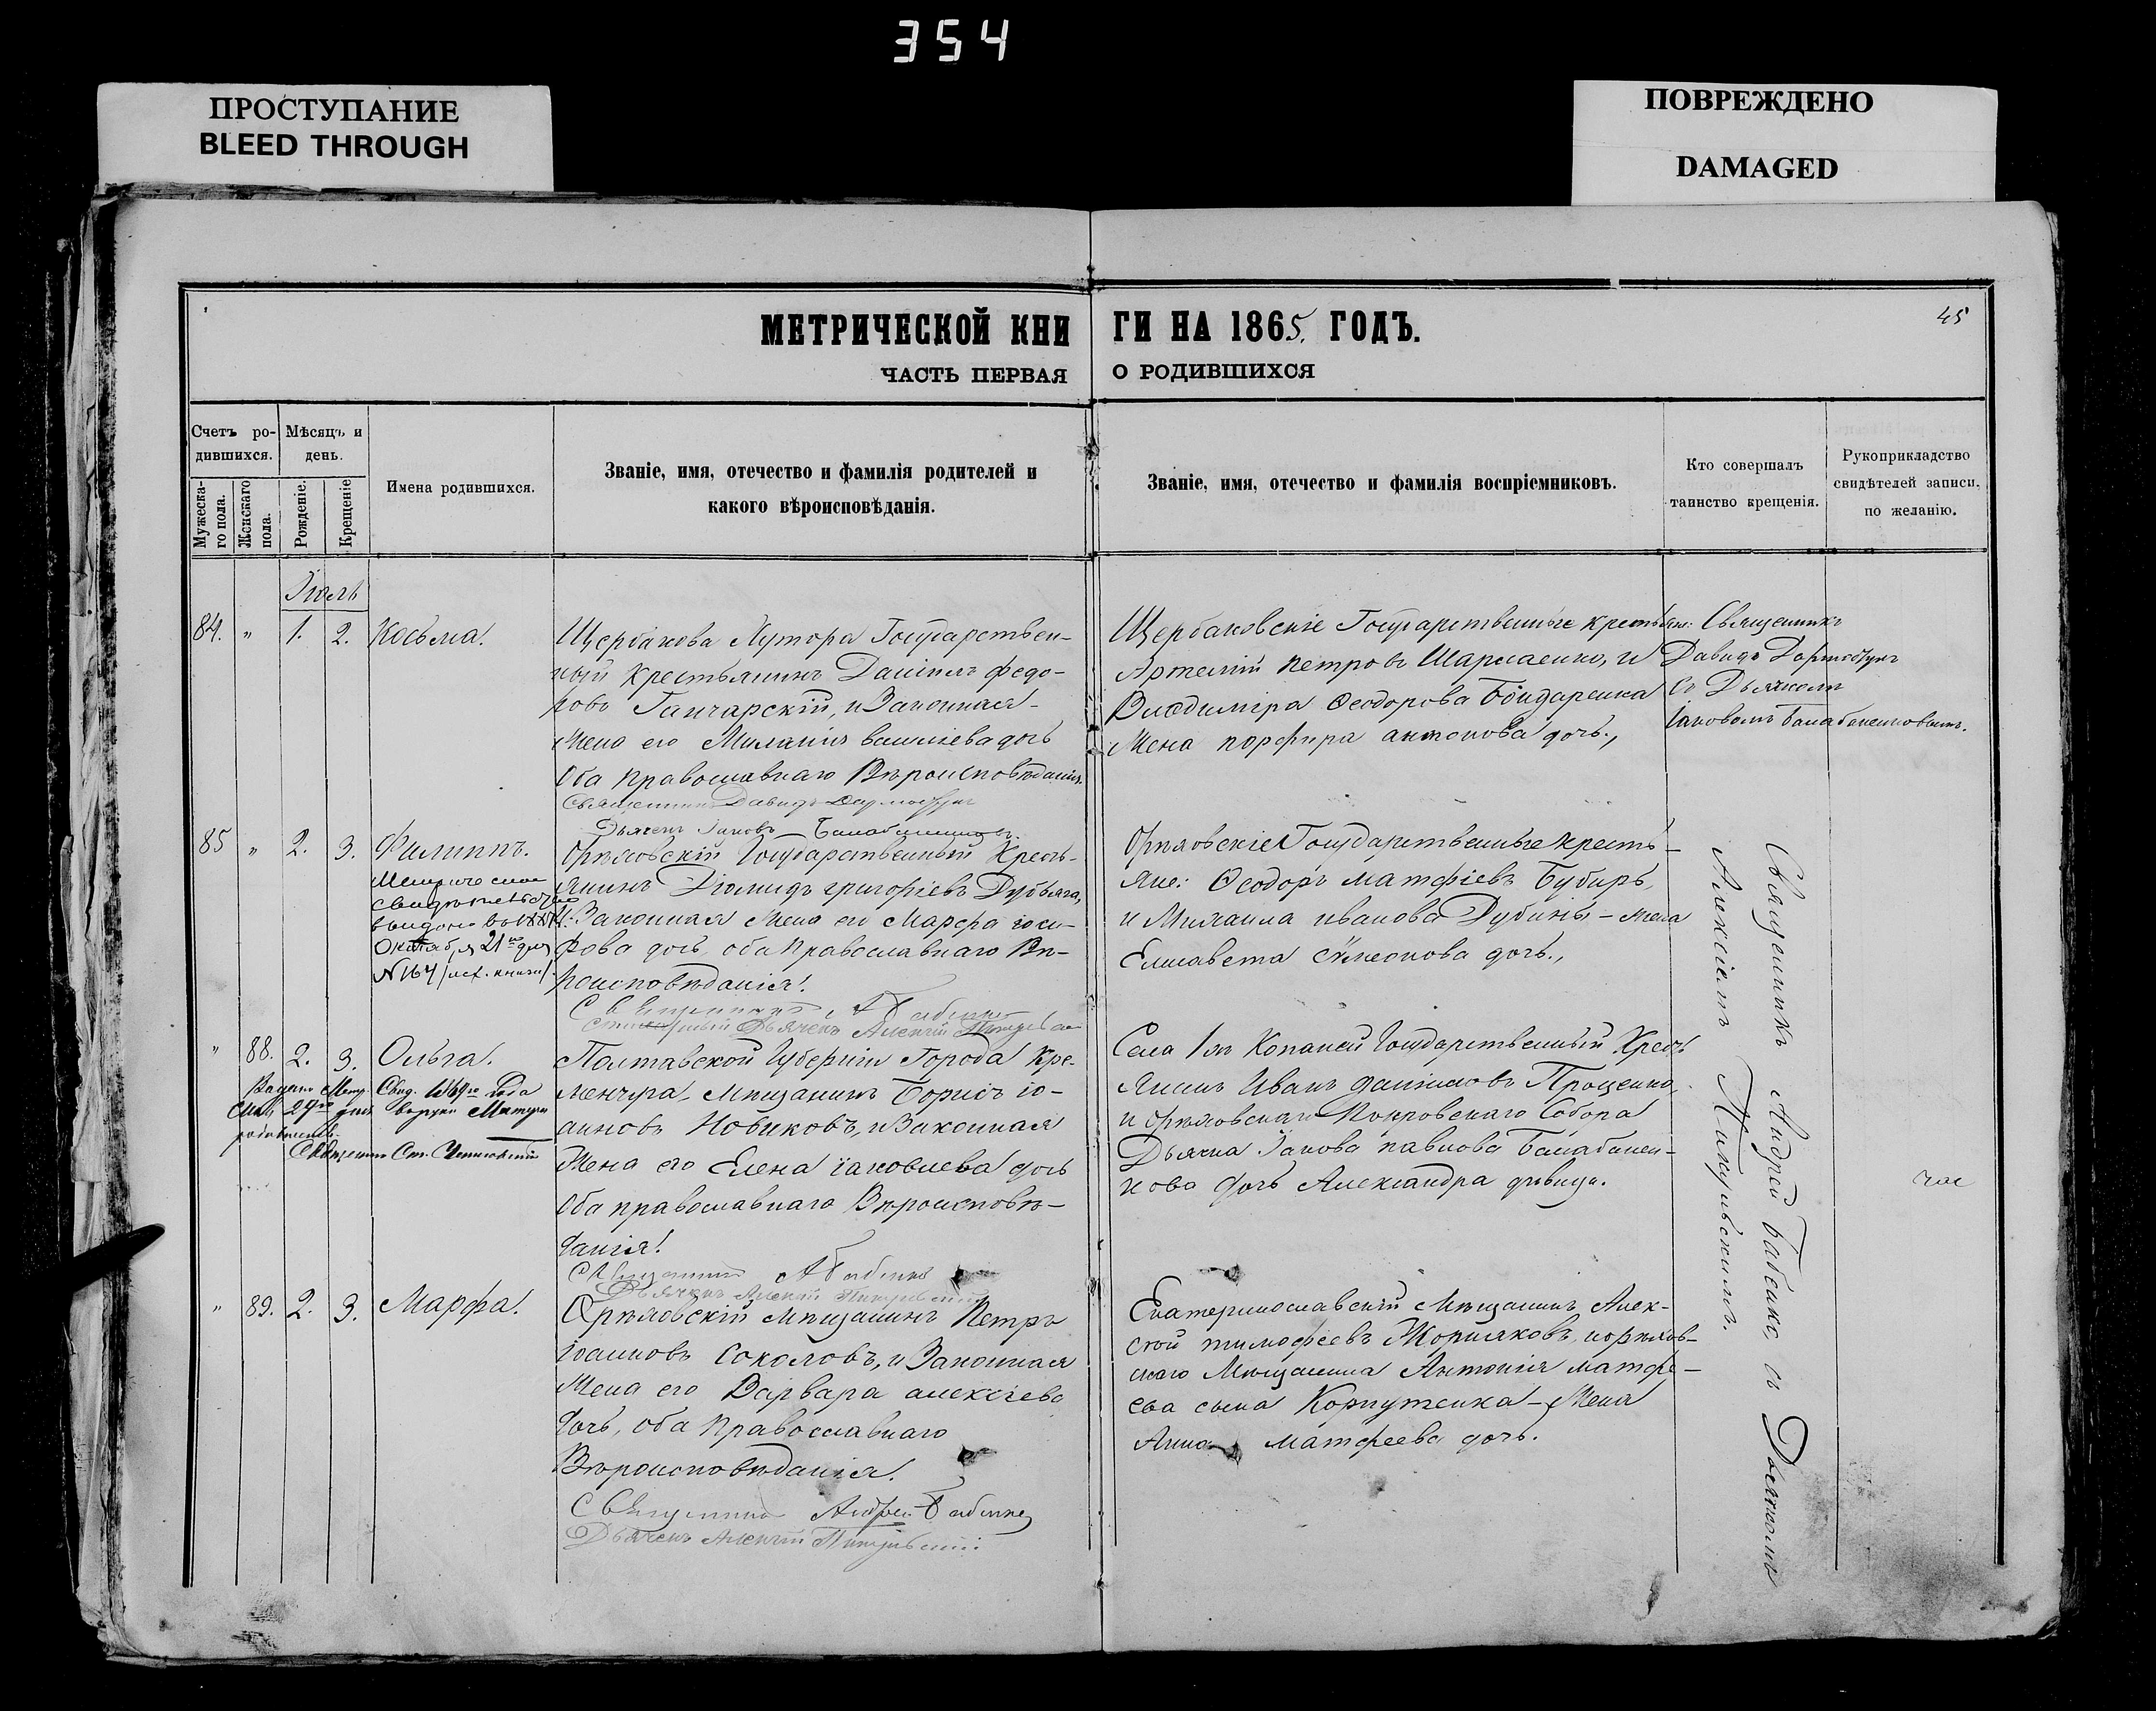 354
ПРОСТУПАНИЕ
BLEED THROUGH
ПОВРЕЖДЕНО
DAMAGED
МЕТРИЧЕСКОЙ КНИ ГИ НА 1865. ГОДЪ.
45
ЧАСТЬ ПЕРВАЯ О РОДИВШИХСЯ
Счетъ ро-
дившихся.
Мужеска-
го пола.
Женскаго
пола.
Мѣсяцъ и
день.
Рожденіе.
Крещеніе
Имена родившихся.
Званіе, имя, отечество и фамилія родителей и
какого вѣроисповѣданія.
Званіе, имя, отечество и фамилія воспріемниковъ.
Кто совершалъ
таинство крещенія.
Рукоприкладство
свидѣтелей записи,
по желанію.
Іюль
84. " 1. 2. Косьма.
Щербакова Хутора Государствен-
ный крестьянинъ Даніилъ федо-
ровъ Ганчарскій, и Законная
жена его Меланія
Оба Православнаго Вѣроисповѣданія.
Священникъ Давидъ
Дьячекъ Іаковъ
Щербаковскіе Государственные крестьяне:
Артемій петровъ и
Владиміра Феодорова Бондаренка
жена порфира антонова дочь.,
Священникъ
Давидъ
съ Дьячкомъ
Іаковомъ
85 " 2. 3. Филиппъ.
Метрическое
свидѣтельство
выдано
Октября 21го дня
№ 164
Орѣховскій Государственный Кресть-
янинъ Діомидъ григоріевъ
и Законная жена его Марфа іоси-
фова дочь, оба Православнаго Вѣ-
роисповѣданія.
Священникъ А Бабенко
Дьячекъ Алексій
Орѣховскіе Государственные кресть-
яне: Феодоръ матфіевъ Бубиръ,
и Михаила иванова Дубины - жена
Елисавета симеонова дочь.,
" 88. 2. 3. Ольга.
Метр. Свид. года
29го дня
Священникъ
Полтавской Губерніи Города Кре-
менчуга Мѣщанинъ Борисъ іо-
анновъ Новиковъ, и Законная
жена его Елена іаковлева дочь
Оба православнаго Вѣроисповѣ-
данія.
Священникъ А Бабенко
Дьячекъ Алексій
Села Копаней Государственный Кресть-
янинъ Иванъ даниловъ Проценко,
и Орѣховскаго Покровскаго Собора
Дьячка Іакова павлова Балабанен-
кова дочь Александра дѣвица.
час
" 89. 2. 3. Марфа.
Орѣховскій мѣщанинъ Петръ
іоанновъ Соколовъ, и Законная
жена его Варвара алексіева
дочь, оба Православнаго
Вѣроисповѣданія.
Священникъ Андрей Бабенко
Дьячекъ Алексій
Екатеринославскій Мѣщанинъ Алек-
сѣй тимофеевъ и орѣхов-
скаго Мѣщанина Антонія матфе-
ева сына жена
Анна матфеева дочь.
Священникъ Андрей Бабенко, съ Дьячкомъ
Алексіемъ